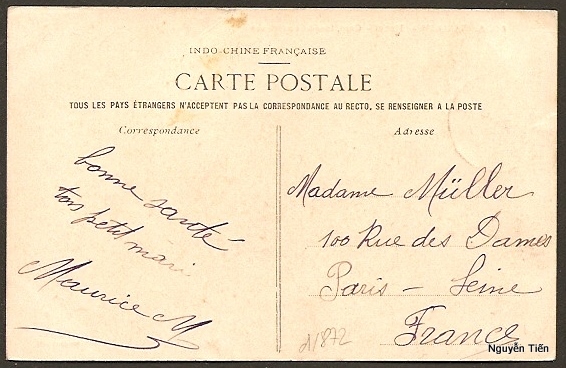 INDO-CHINE FRANÇAISE
CARTE POSTALE
TOUS LES PAYS ÉTRANGERS N'ACCEPTENT PAS LA CORRESPONDANCE AU RECTO, SE RENSEIGNER A LA POSTE
Correspondance
bonne santé
ton petit mari
Maurice M
Adresse
Madame Müller
100 Rue des Dames
Paris – Seine
France
Nguyễn Tiến